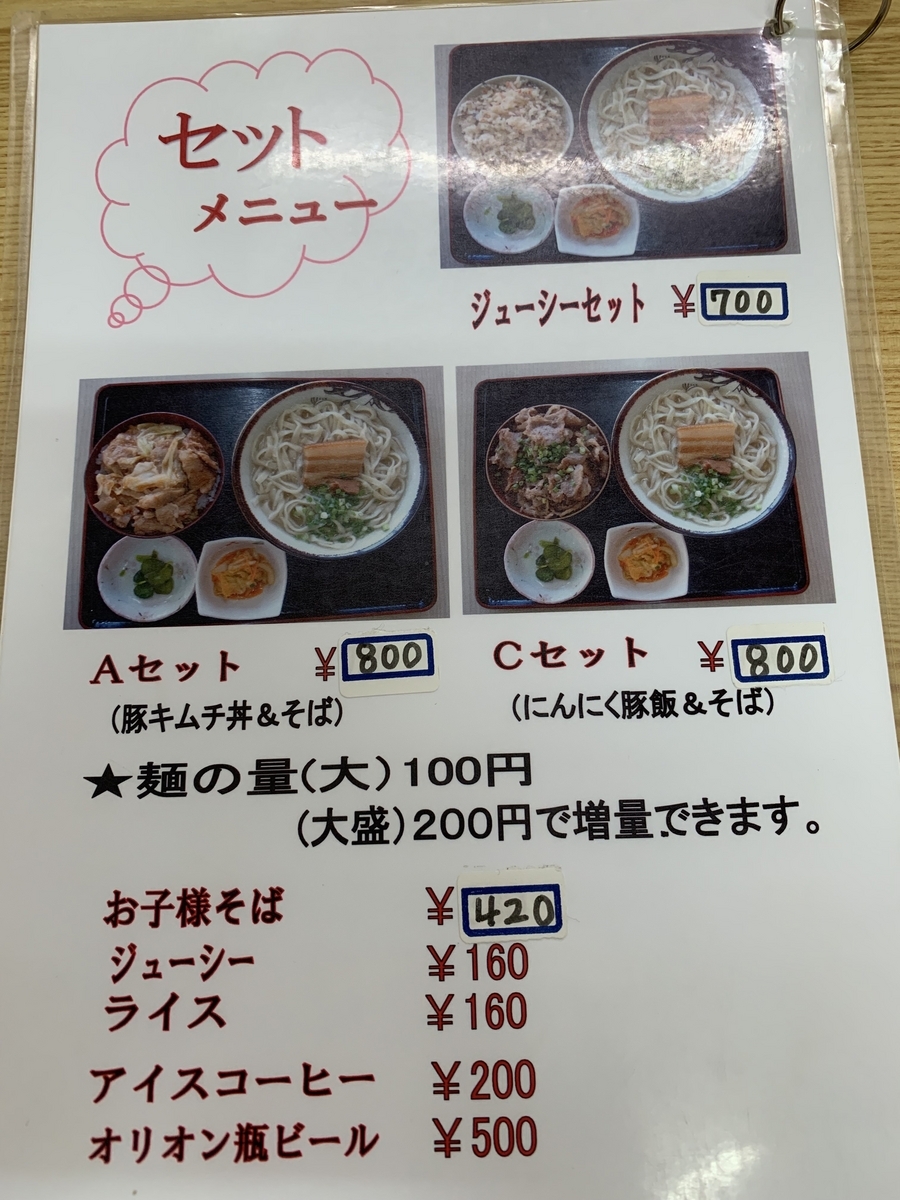 セット
メニュー
ジューシーセット ￥700
Aセット ￥800
(豚キムチ丼＆そば)
Cセット ￥800
(にんにく豚飯＆そば)
★麺の量(大)100円
(大盛)200円で増量できます。
お子様そば ￥420
ジューシー ￥160
ライス ￥160
アイスコーヒー ￥200
オリオン瓶ビール ￥500